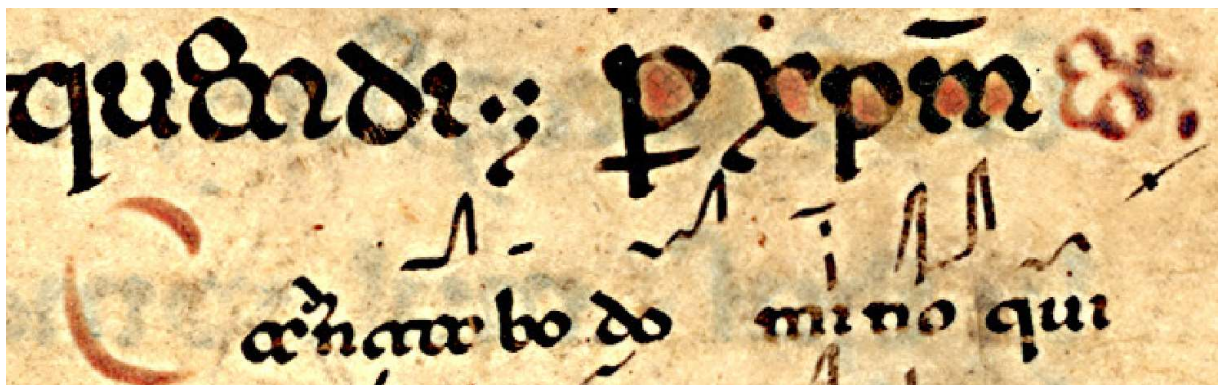 quendi:; P xp̄m
Cantabo domino qui